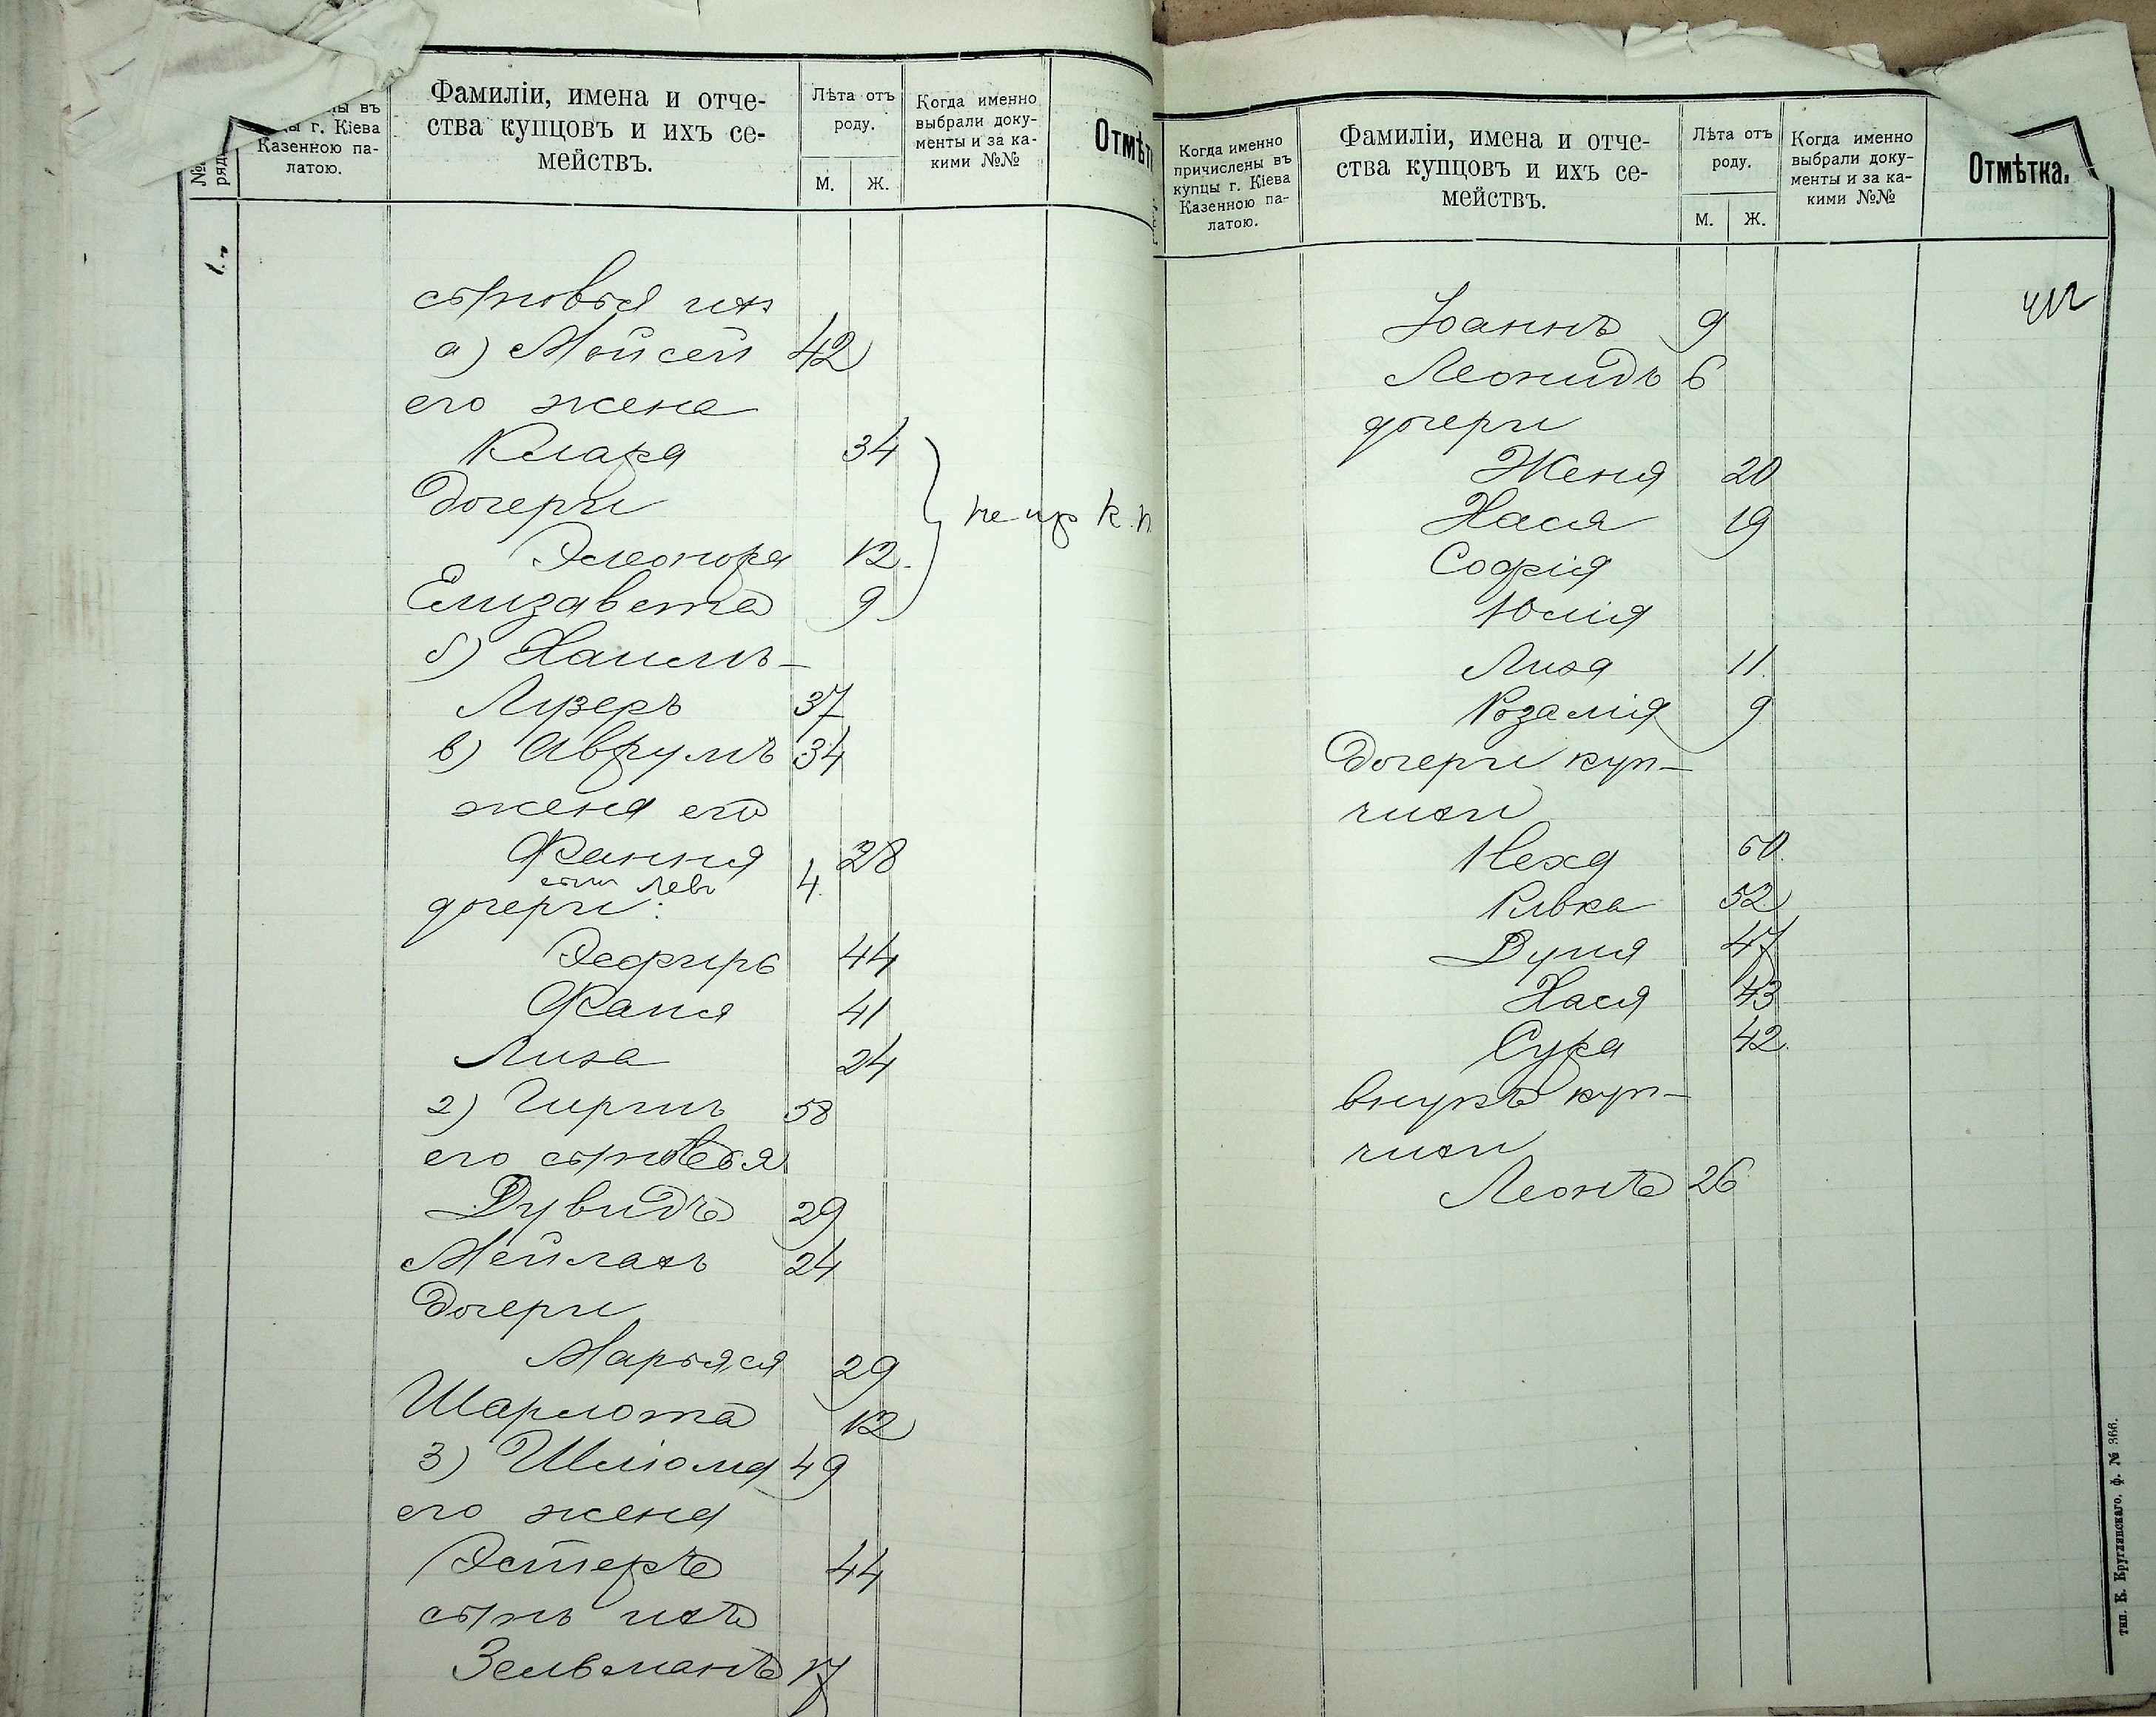 №
ряд
ы въ
ы г. Кіева
Казенною па-
латою.
Фамиліи, имена и отче-
ства купцовъ и ихъ се-
мействъ.
Лѣта отъ
роду.
М. Ж.
Когда именно
выбрали доку-
менты и за ка-
кими №№
Отмѣт
сыновья ихъ
а) Мойсей 42
его жена
Клара 34
дочери
Элеонора 12
Елизавета 9
б) Хаимъ-
Лузеръ 37
в) Аврумъ 34
жена его
Фання 28
сынъ Левъ 4.
дочери:
Эсфирь 44
Фаня 41
Лиза 24
2) Гиршъ 58
его сыновья
Дувидъ 29
Мейлахъ 24
дочери
Марьяся 29
Шарлота 12
3) Шліома 49
его жена
Эстеръ 44
сынъ ихъ
Зельманъ 17
Когда именно
причислены въ
купцы г. Кіева
Казенною па-
латою.
Фамиліи, имена и отче-
ства купцовъ и ихъ се-
мействъ.
Лѣта отъ
роду.
М. Ж.
Когда именно
выбрали доку-
менты и за ка-
кими №№
Отмѣтка.
Іоаннъ 9
Леонидъ 6
дочери
Женя 20
Хася 19
Софія
Юлія
Лиза 11.
Розалія 9
дочери куп-
чихи
Неха 60.
Ривка 52
Дуня 47
Хася 43
Сура 42.
внукъ куп-
чихи
Леонъ 26
тип. К. Круглянскаго, ф. № 366.